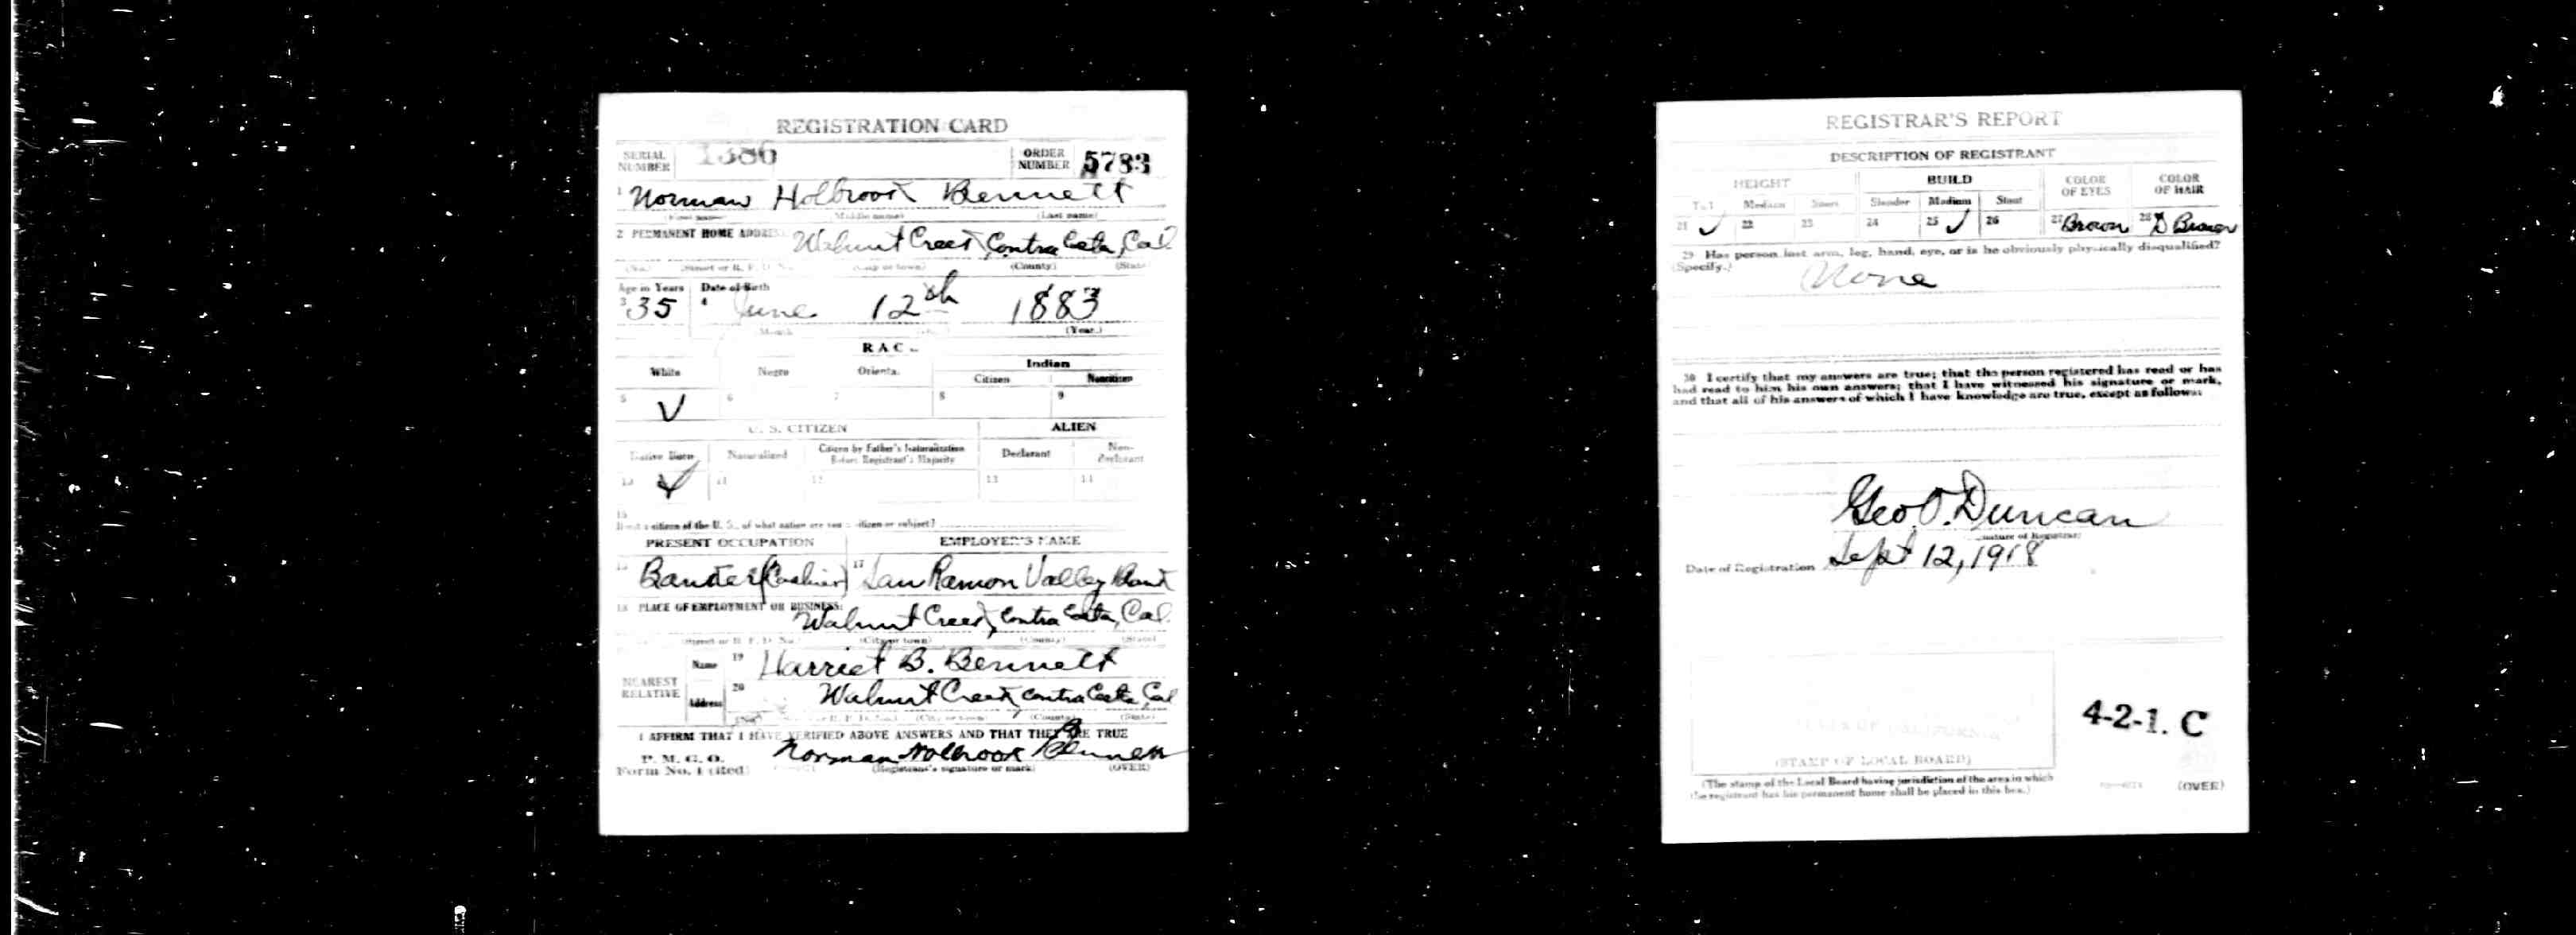 REGISTRATION CARD
SERIAL NUMBER 1386 ORDER NUMBER 5783
1 Norman Holbrook Bennett
(First name) (Middle name) (Last name)
2 PERMANENT HOME ADDRESS: Walnut Creek, Contra Costa, Cal.
(No.) (Street or R. F. D. No.) (City or town) (County) (State)
Age in Years Date of Birth
3 35 4 June 12th 1883
Month (Year.)
RACE
White Negro Oriental Indian
Citizen Noncitizen
5 ✓ 6 7 8 9
U. S. CITIZEN ALIEN
Native Born Naturalized Citizen by Father's Naturalization Before Registrant's Majority Declarant Non-declarant
10 ✓ 11 12 13 14
15
If not a citizen of the U. S., of what nation are you a citizen or subject?
PRESENT OCCUPATION EMPLOYER'S NAME
16 Banker (Cashier) 17 San Ramon Valley Bank
18 PLACE OF EMPLOYMENT OR BUSINESS:
Walnut Creek, Contra Costa, Cal.
(Street or R. F. D. No.) (City or town) (County) (State)
NEAREST RELATIVE Name 19 Harriet B. Bennett
Address 20 Walnut Creek, Contra Costa, Cal
(No.) (City or town) (County) (State)
I AFFIRM THAT I HAVE VERIFIED ABOVE ANSWERS AND THAT THEY ARE TRUE
P. M. G. O.
Form No. 1 Norman Holbrook Bennett
(Registrant's signature or mark) (OVER)
REGISTRAR'S REPORT
DESCRIPTION OF REGISTRANT
HEIGHT BUILD COLOR OF EYES COLOR OF HAIR
Tall Medium Short Slender Medium Stout
21 ✓ 22 23 24 25 ✓ 26 27 Brown 28 D Brown
29 Has person lost arm, leg, hand, eye, or is he obviously physically disqualified?
(Specify.) None
30 I certify that my answers are true; that the person registered has read or has
had read to him his own answers; that I have witnessed his signature or mark,
and that all of his answers of which I have knowledge are true, except as follows:
Geo. O. Duncan
(Signature of Registrar)
Date of Registration Sept 12, 1918
STATE OF CALIFORNIA
(STAMP OF LOCAL BOARD)
4-2-1. C
(The stamp of the Local Board having jurisdiction of the area in which
the registrant has his permanent home shall be placed in this box.)
(OVER)